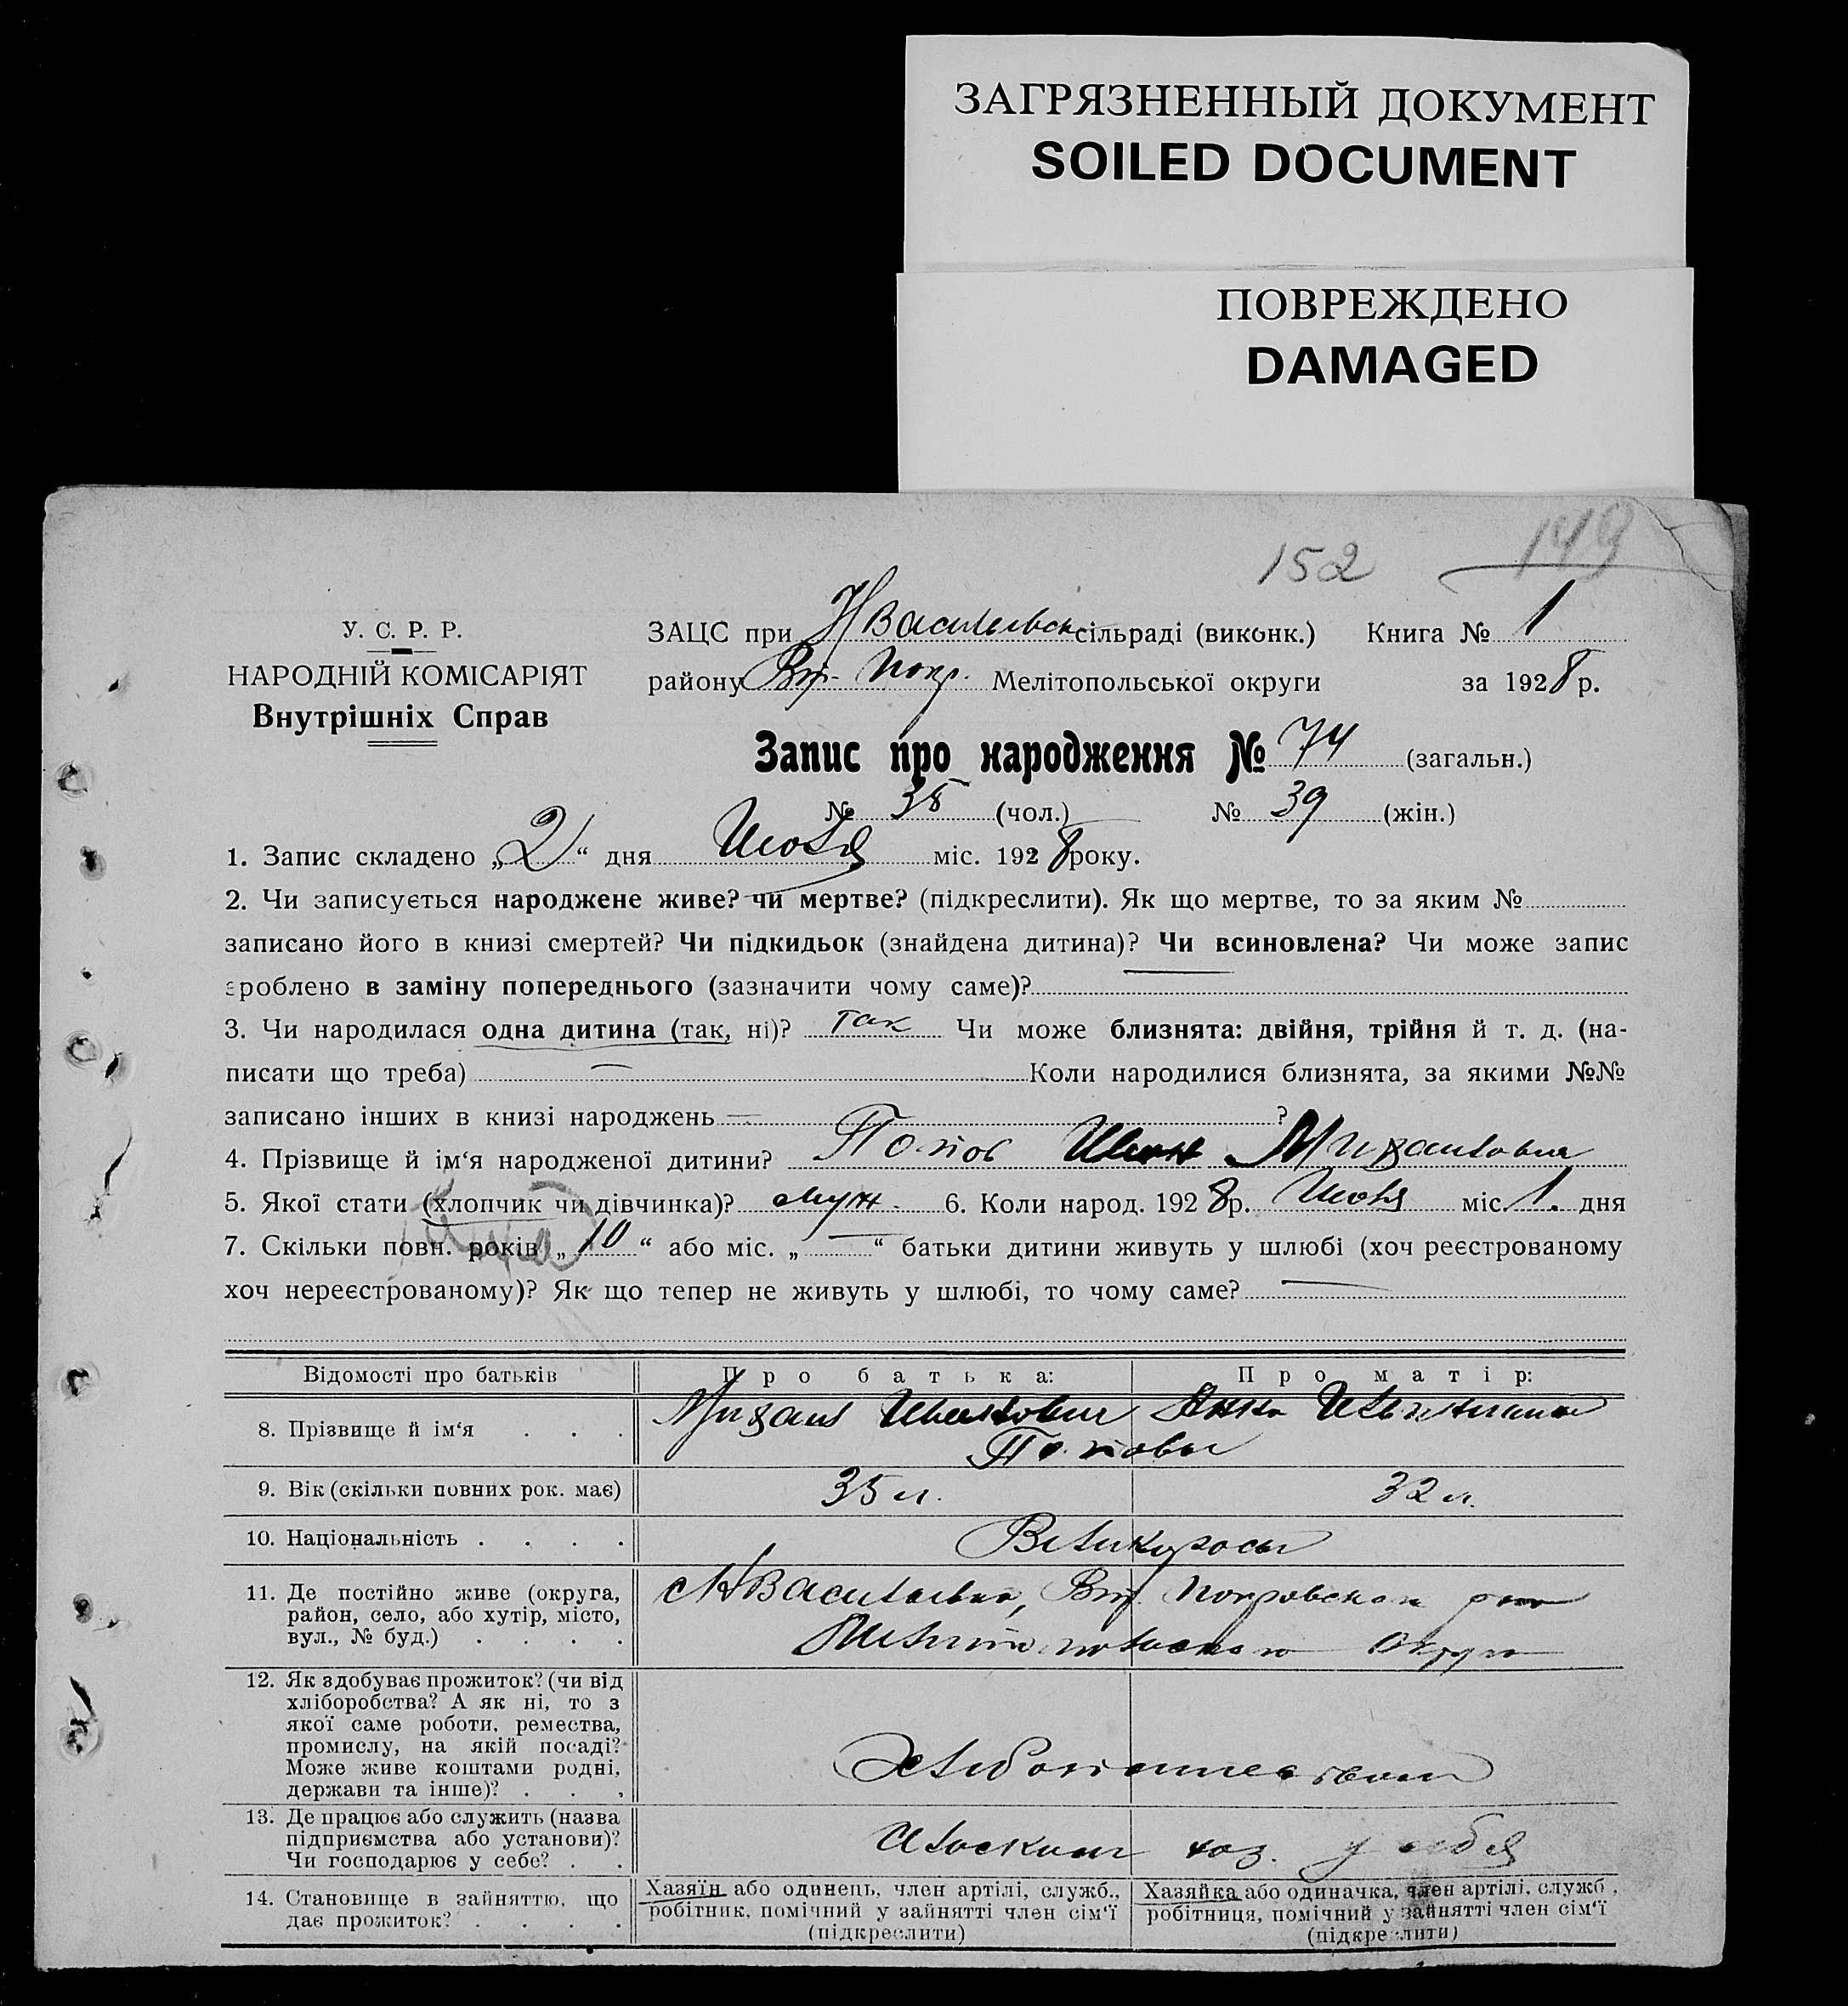 ЗАГРЯЗНЕННЫЙ ДОКУМЕНТ
SOILED DOCUMENT
ПОВРЕЖДЕНО
DAMAGED
152 149
У. С. Р. Р.
НАРОДНІЙ КОМІСАРІЯТ
Внутрішніх Справ
ЗАЦС при НВасильевск сільраді (виконк.) Книга № 1
району Вт. Покр. Мелітопольської округи за 1928 р.
Запис про народження № 74 (загальн.)
№ 35 (чол.) № 39 (жін.)
1. Запис складено „2“ дня Июля міс. 1928 року.
2. Чи записується народжене живе? чи мертве? (підкреслити). Як що мертве, то за яким №
записано його в книзі смертей? Чи підкидьок (знайдена дитина)? Чи всиновлена? Чи може запис
зроблено в заміну попереднього (зазначити чому саме)?
3. Чи народилася одна дитина (так, ні)? так Чи може близнята: двійня, трійня й т. д. (на-
писати що треба) — Коли народилися близнята, за якими №№
записано інших в книзі народжень — ?
4. Прізвище й ім‘я народженої дитини? Попов Иван Михайлович
5. Якої стати (хлопчик чи дівчинка)? муж. 6. Коли народ. 1928 р. Июля міс. 1. дня
7. Скільки повн. років „10“ або міс. „—“ батьки дитини живуть у шлюбі (хоч реєстрованому
хоч нереєстрованому)? Як що тепер не живуть у шлюбі, то чому саме? —
Відомості про батьків Про батька: Про матір:
8. Прізвище й ім‘я . . . Михаил Иванович Анна
Поповы
9. Вік (скільки повних рок. має) 35 л. 32 л.
10. Національність . . . . Великоросы
11. Де постійно живе (округа,
район, село, або хутір, місто,
вул., № буд.) . . . .
с НВасильевка, Вт. Покровского р-на
Мелитопольского Округа
12. Як здобуває прожиток? (чи від
хліборобства? А як ні, то з
якої саме роботи, ремества,
промислу, на якій посаді?
Може живе коштами родні,
держави та інше)? . . .
Хлебопашеством
13. Де працює або служить (назва
підприємства або установи)?
Чи господарює у себе? . .
хоз. у себя
14. Становище в зайняттю, що
дає прожиток? . . . .
Хазяїн або одинець, член артілі, служб.,
робітник, помічний у зайнятті член сім‘ї
(підкреслити)
Хазяйка або одиначка, член артілі, служб.,
робітниця, помічний у зайнятті член сім‘ї
(підкреслити)